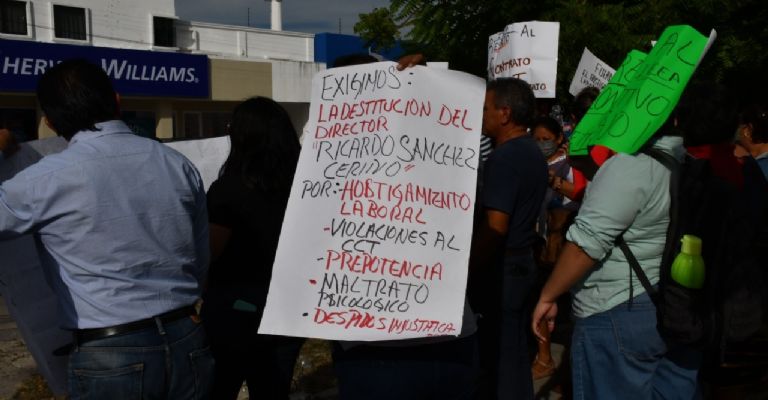 HERWIN WILLIAMS®
EXIGIMOS:
LA DESTITUCION DEL
DIRECTOR
"RICARDO SANCHEZ
CERINO"
POR:-HOBTIGAMIENTO
LABORAL
-VIOLACIONES AL
CCT
-PREPOTENCIA
• MALTRATO
PSICOLOGICO
• DESPIDOS INJUSTIFICA
AL
CONTRATO
FUERA
AL